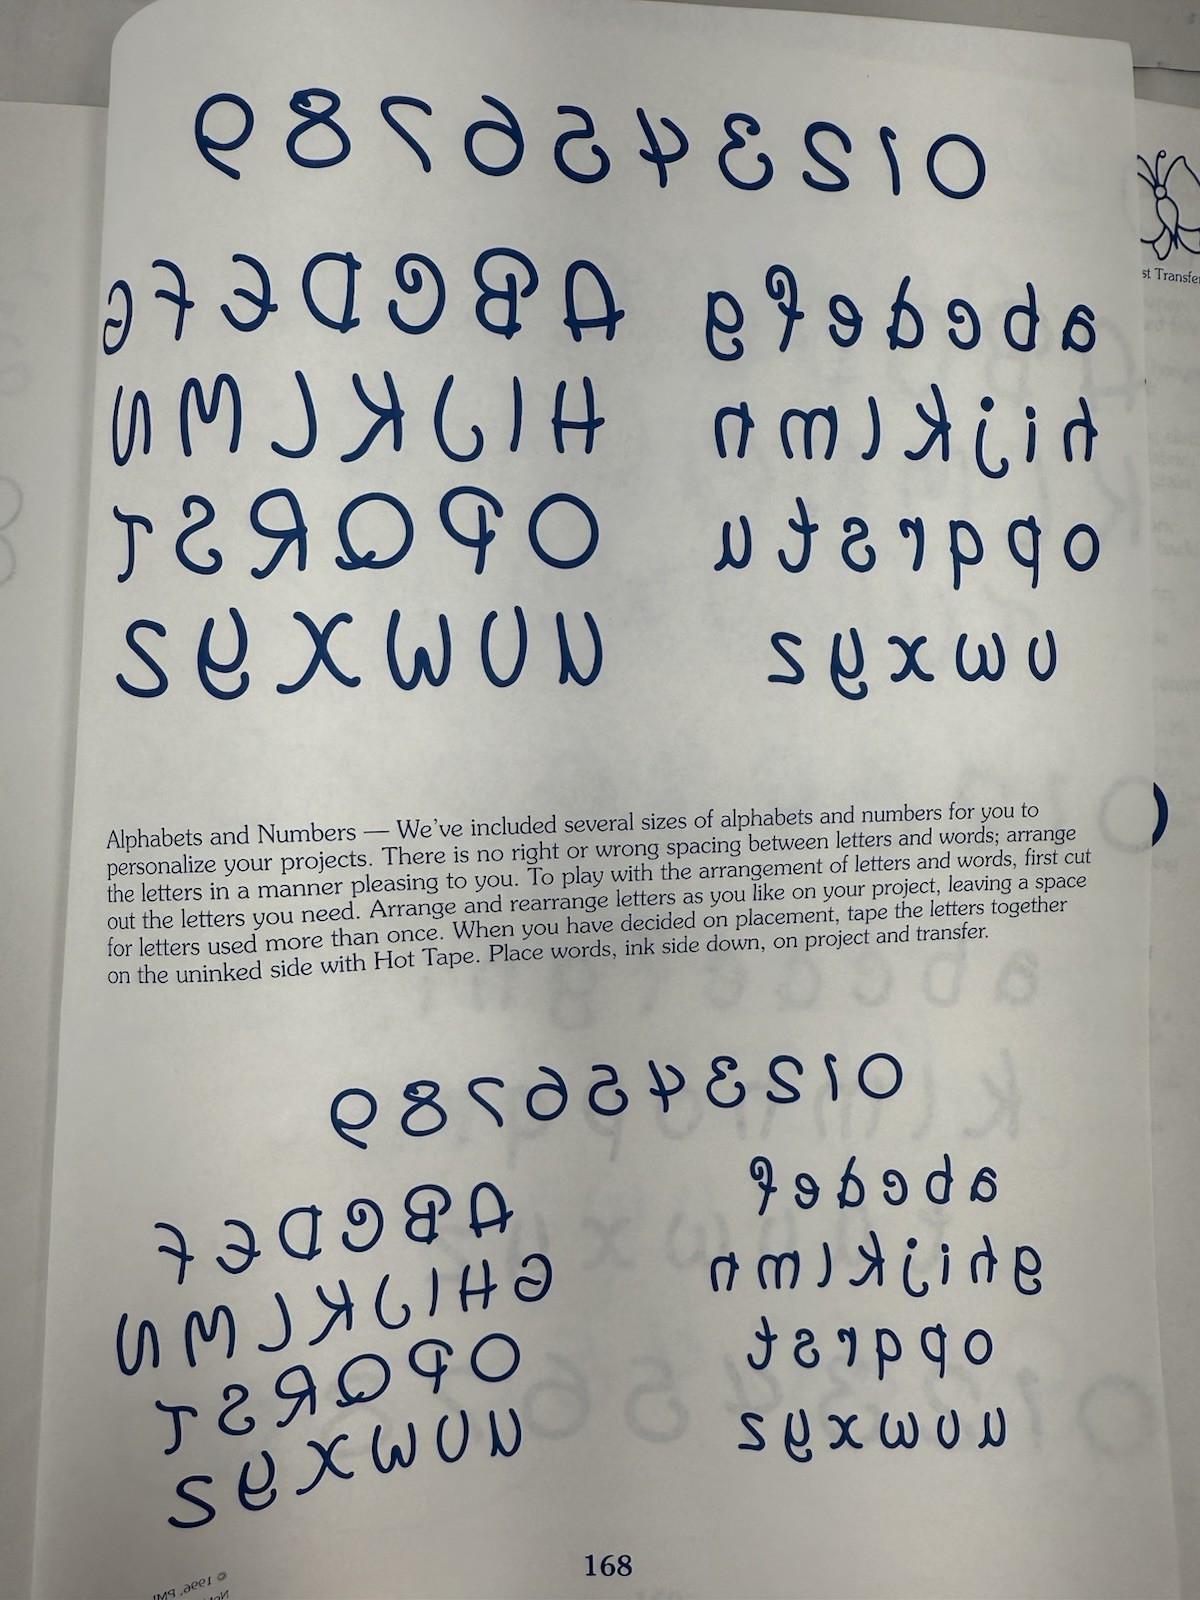 0 1 2 3 4 5 6 7 8 9
A B C D E F G
H I J K L M N
O P Q R S T
U V W X Y Z
a b c d e f g
h i j k l m n
o p q r s t u
v w x y z
Alphabets and Numbers — We've included several sizes of alphabets and numbers for you to
personalize your projects. There is no right or wrong spacing between letters and words; arrange
the letters in a manner pleasing to you. To play with the arrangement of letters and words, first cut
out the letters you need. Arrange and rearrange letters as you like on your project, leaving a space
for letters used more than once. When you have decided on placement, tape the letters together
on the uninked side with Hot Tape. Place words, ink side down, on project and transfer.
0 1 2 3 4 5 6 7 8 9
A B C D E F
G H I J K L M N
O P Q R S T
U V W X Y Z
a b c d e f
g h i j k l m n
o p q r s t
u v w x y z
168
© 1996, PMI